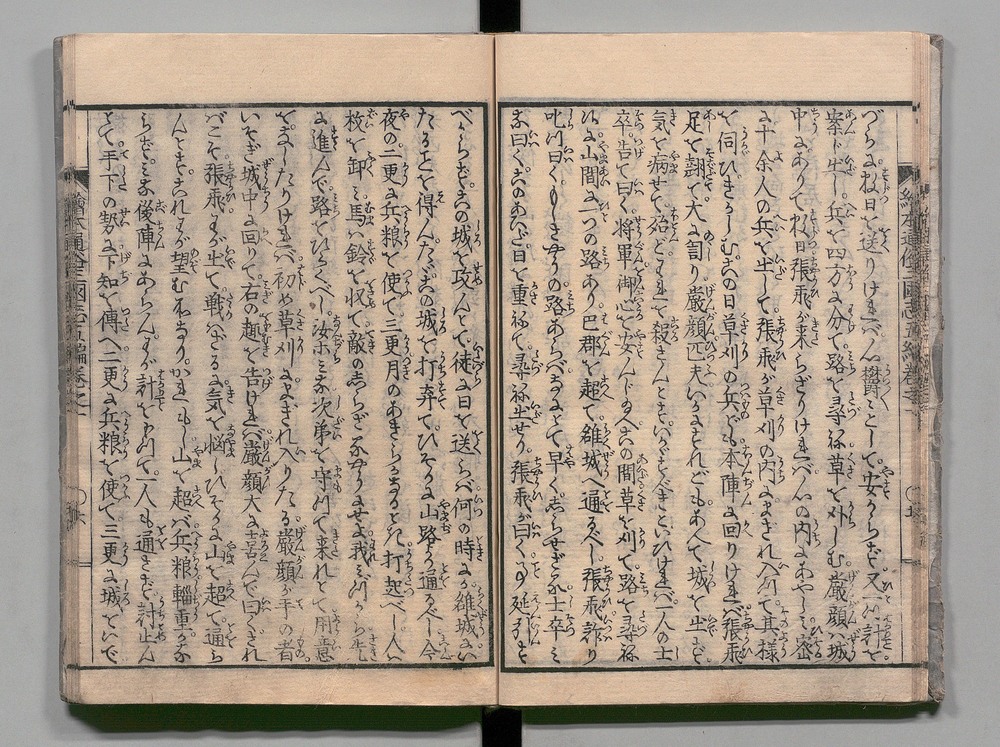 づらに松日を送りければ心鬱々として安からず又一ツの計を
案じ出し兵を四方に分て路を尋ね草を刈しむ厳顔ハ城
中にありて松日張飛が来らざりければ心の内にあやしミ密
に十余人の兵を出して張飛が草刈の内にまぎれ入て其様
を伺ひきかしむ其日草刈の兵ども本陣に回りければ張飛
足を翻て大に罵り厳顔匹夫いかなれどもあへて城を出ず
気を病せて殆どわれを殺さんとといひければ一人の士
卒告て曰く将軍御心を安んじ玉へ此間草を刈て路を尋ね
に山間に一つの路あり巴郡を超て雒城へ通るべし張飛詐り
叱て曰くかゝる路あらばなにとて早くしらせざるぞ士卒ミ
な曰く此あひだ日を重ねて尋ね出せり張飛が曰く事延引す
べからず此の城を攻んとて徒に日を送らバ何の時か雒城にい
たることを得んたゞ此の城を打弃てひそかに山路より通るべし今
夜の二更に兵粮を使て三更月のあきらかなるとき打起べし人ハ
枚を卸ミ馬ハ鈴を収て敵のしらざるやうにせよ我ミづから先
に進んで路をひらくべし汝等ミな次第を守つて来れとて用意
をなしたりければ初め草刈にまぎれ入りたる厳顔が手の者
いそぎ城中に回りて右の趣を告ければ厳顔大に喜んで曰くされ
バこそ張飛めが出て戦ハざるに気を悩しひそかに山を超て通ら
んとすこれわが望む所なりかれもし山を超バ兵粮輜重かな
らずミな後陣にあらんわが計を以て一人も通さず討止ん
とて手下の勢に下知を傳へ二更に兵粮を使て三更に城をいで
繪本通俗三國志五編巻之二